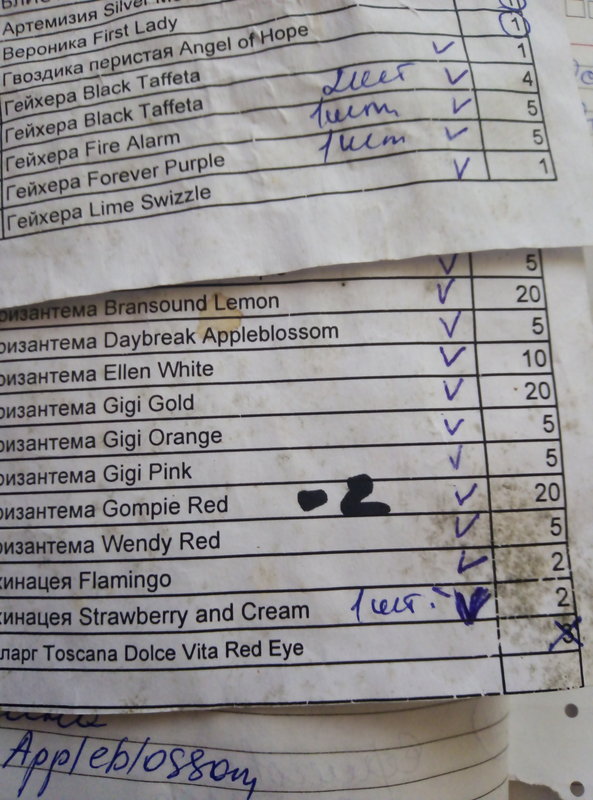 Артемизия Silver
Вероника First Lady
Гвоздика перистая Angel of Hope 1
Гейхера Black Taffeta ✓ 1
Гейхера Black Taffeta 2шт ✓ 4
Гейхера Fire Alarm 1шт ✓ 5
Гейхера Forever Purple 1шт ✓ 5
Гейхера Lime Swizzle ✓ 1
✓ 5
ризантема Bransound Lemon ✓ 20
ризантема Daybreak Appleblossom ✓ 5
ризантема Ellen White ✓ 10
ризантема Gigi Gold ✓ 20
ризантема Gigi Orange ✓ 5
ризантема Gigi Pink ✓ 5
ризантема Gompie Red -2 ✓ 20
ризантема Wendy Red ✓ 5
хинацея Flamingo ✓ 2
хинацея Strawberry and Cream 1шт. ✓ 2
ларг Toscana Dolce Vita Red Eye
Appleblossom